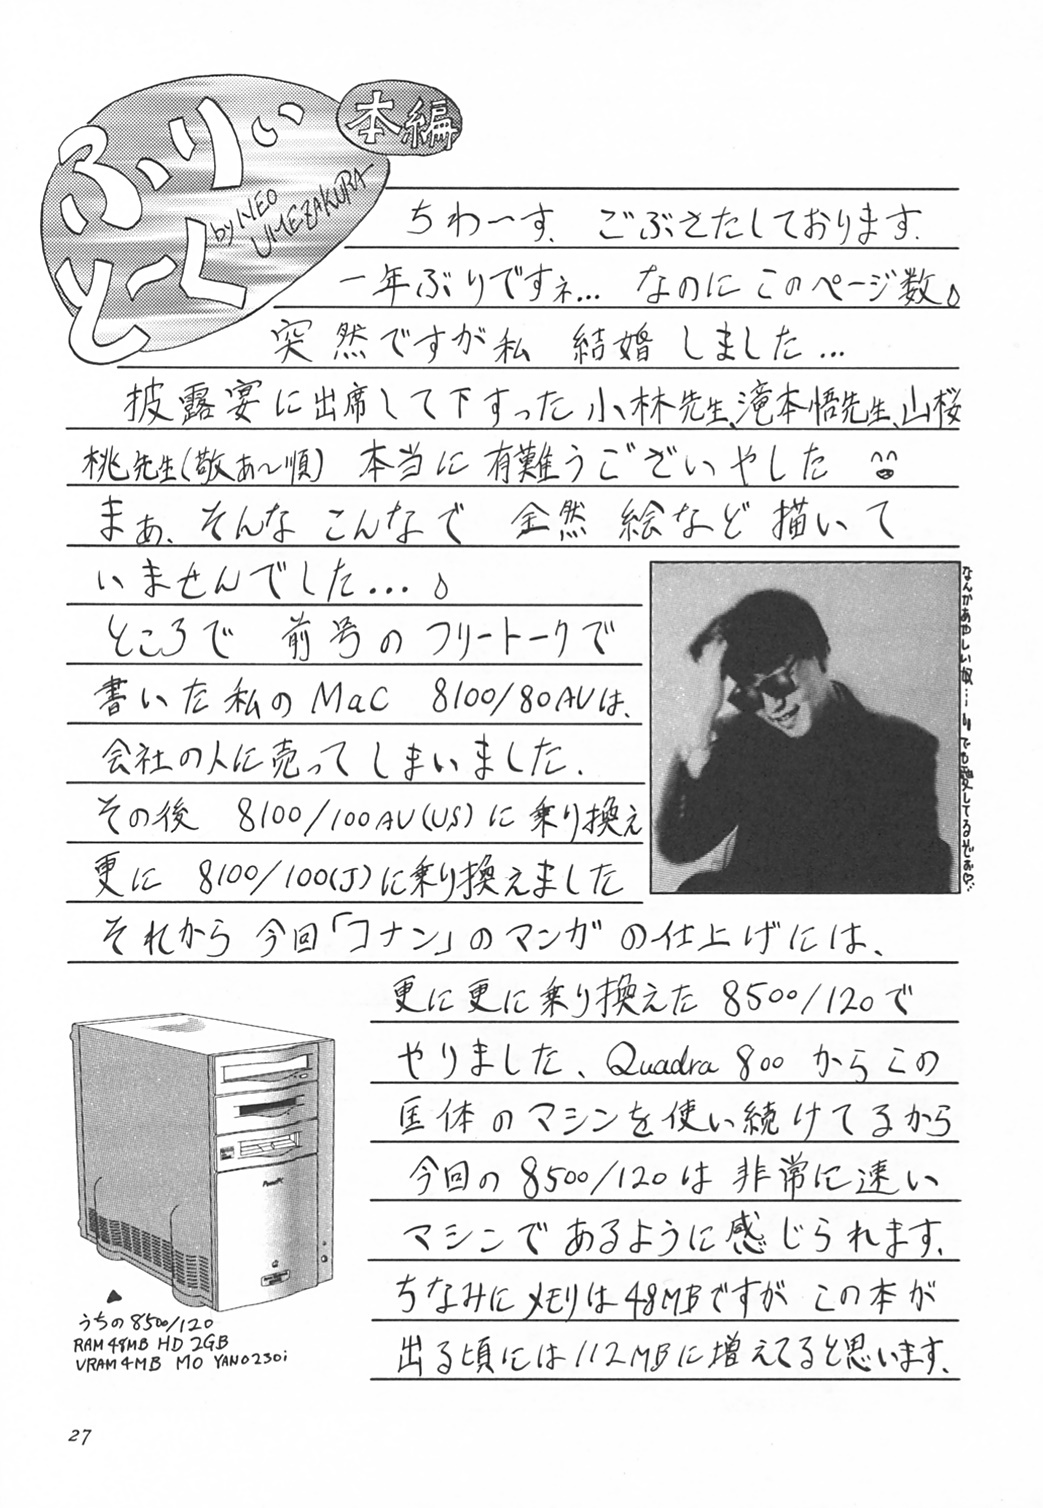 ふりぃ
とーく
本編
by NEO
UMEZAKURA
ちわーす、ごぶさたしております.
一年ぶりですネ… なのにこのページ数。
突然ですが私 結婚しました…
披露宴に出席して下すった小林先生、滝本悟先生、山桜
桃先生(敬あ〜順) 本当に有難うございやした
まぁ、そんなこんなで 全然 絵など描いて
いませんでした…。
ところで 前号のフリートークで
書いた私のMaC 8100/80AVは、
会社の人に売ってしまいました.
その後 8100/100AV(US)に乗り換え
更に 8100/100(J)に乗り換えました
それから今回「コナン」のマンガの仕上げには、
更に更に乗り換えた 8500/120で
やりました、Quadra 800 からこの
匡体のマシンを使い続けてるから
今回の8500/120は非常に速い
マシンであるように感じられます.
ちなみにメモリは48MBですが この本が
出る頃には112MBに増えてると思います.
なんかあやしい奴…… でも愛してるぞぉ♡…
PowerPC
うちの8500/120
RAM48MB HD2GB
VRAM4MB MO YANO230i
27